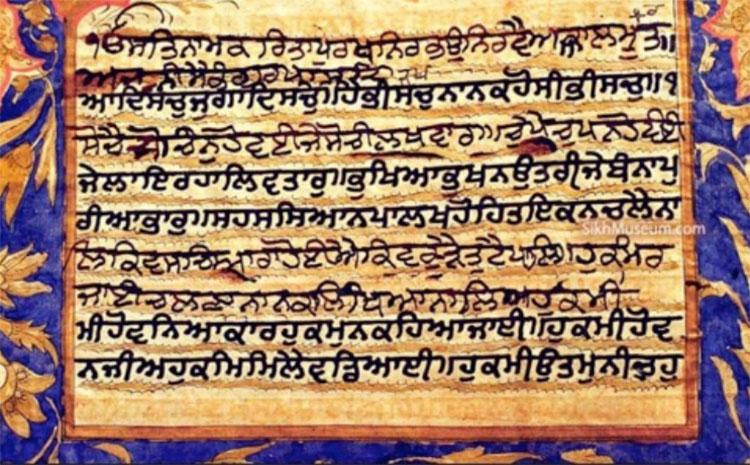 ੧ਓ ਸਤਿਨਾਮਕ ਰਿਤਾਪੁਰਖਨਿਰਭਉਨਿਰਵੈਅਕਾਲਮੂਤ॥
ਆਦਿਸਚੁਜੁਗਾਦਿਸਚੁ॥ਹਿਭੀਸਚੁਨਾਨਕਹੋਸੀਭੀਸਚੁ॥੧
ਸੋਚੈਸੋਚਿਨਹੋਵਈਜੇਸੋਚੀਲਖਵਾਰ॥ਚੁਪੈਚੁਪਨਹੋਵਈ
ਜੇਲਾਇਰਹਾਲਿਵਤਾਰੁ॥ਭੁਖਿਆਭੁਖਨਉਤਰੀਜੇਬੰਨਾਪੁ
ਰੀਆਭਾਰੁ॥ਸਹਸਸਿਆਨਪਾਲਖਹੋਹਿਤਇਕਨਚਲੈਨਾ
SikhMuseum.com
ਲਿਕਿਵਸਚਿਆਰਾਹੋਈਐਕਿਵਕੂੜੈਤੁਟੈਪਾਲਿ॥ਹੁਕਮਰ
ਜਾਈਚਲਣਾਨਾਨਕਲਿਖਿਆਨਾਲਿ॥ਹੁਕਮੀ
ਮੀਹੋਵਨਿਆਕਾਰਹੁਕਮੁਨਕਹਿਆਜਾਈ॥ਹੁਕਮੀਹੋਵ
ਨਜੀਅਹੁਕਮਿਮਿਲੈਵਡਿਆਈ॥ਹੁਕਮੀਉਤਮੁਨੀਚੁਹੁ